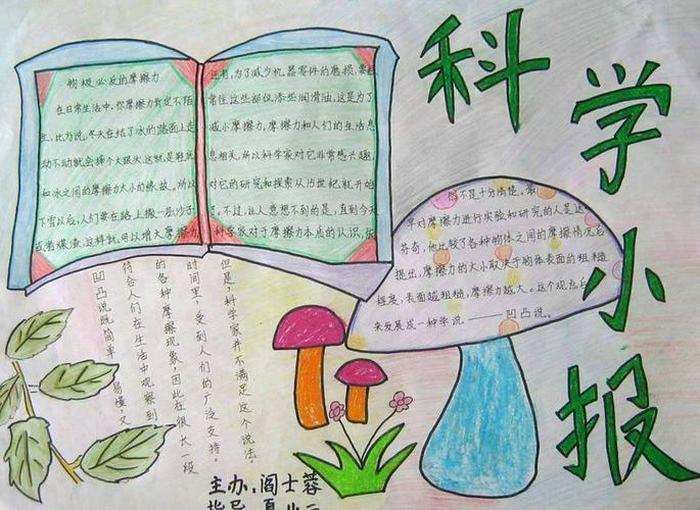 科学小报
物极必反的摩擦力
在日常生活中,你摩擦力肯定不陌
生,比如说,冬天在结了冰的路面上走
动不动就会摔个大跟头,这就是鞋底
和冰之间的摩擦力太小的缘故,所以
下雪以后,人们要在路上撒一些沙子
或者煤渣,这样就可以增大摩擦力
还有,为了减少机器零件的磨损,要经
常往这些部位添些润滑油,这是为了
减小摩擦力,摩擦力和人们的生活息
息相关,所以科学家对它非常感兴趣,
对它的研究和探索从15世纪就开始
了。不过,让人意想不到的是,直到今天
科学家对于摩擦力本质的认识,依
然不是十分清楚。最
早对摩擦力进行实验和研究的人是达
芬奇,他比较了各种物体之间的摩擦情况后
提出,摩擦力的大小取决于物体表面的粗糙
程度,表面越粗糙,摩擦力越大。这个观点后
来发展成一种学说.——凹凸说。
但是,科学家并不满足这个说法。
时间里,受到人们的广泛支持。
的各种摩擦现象,因此在很长一段
符合人们在生活中观察到
凹凸说既简单 易懂,又
主办.阎士蓉